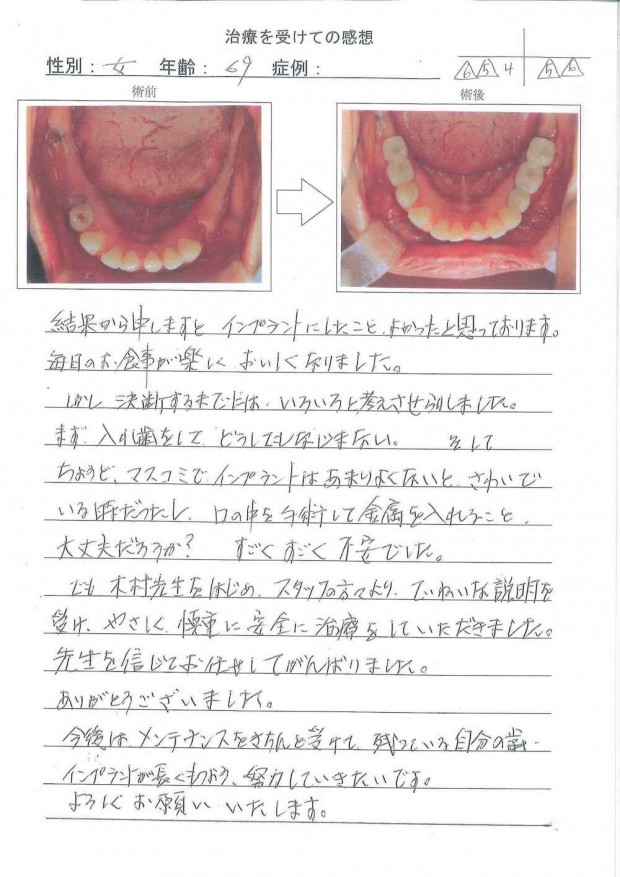 治療を受けての感想
性別：女 年齢：69 症例： 6 5 4 5 6
術前 術後
結果から申しますと インプラントにしたこと、よかったと思っております。
毎日のお食事が楽しく おいしくなりました。
しかし 決断するまでには、いろいろと考えさせられました。
まず、入れ歯をして どうしてもなじまない。 そして
ちょうど、マスコミで インプラントは あまりよくないと、さわいで
いる時だったし、口の中を手術して金属を入れること、
大丈夫だろうか？ すごく すごく 不安でした。
でも 木村先生をはじめ、スタッフの方々より、ていねいな説明を
受け、やさしく、慎重に 安全に 治療をしていただきました。
先生を信じてお任せしてがんばりました。
ありがとうございました。
今後は メンテナンスをきちんと受けて、残っている自分の歯・
インプラントが長くもつよう、努力していきたいです。
よろしくお願いいたします。